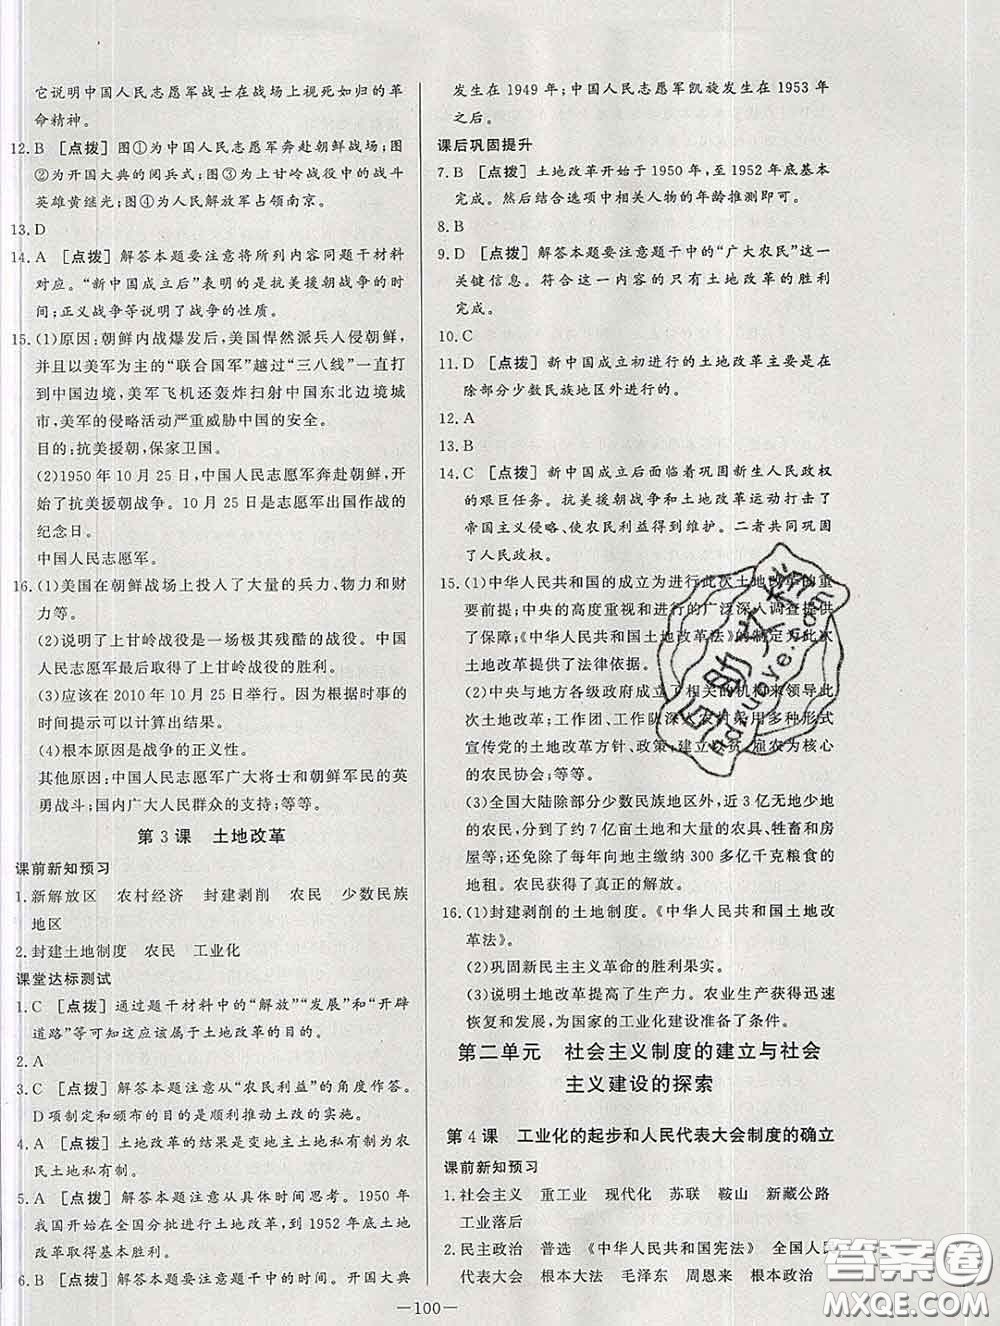 它说明中国人民志愿军战士在战场上视死如归的革
命精神。
12.B [点拨] 图①为中国人民志愿军奔赴朝鲜战场;图
②为开国大典的阅兵式;图③为上甘岭战役中的战斗
英雄黄继光;图④为人民解放军占领南京。
13.D
14.A [点拨] 解答本题要注意将所列内容同题干材料
对应。“新中国成立后”表明的是抗美援朝战争的时
间;正义战争等说明了战争的性质。
15.(1)原因:朝鲜内战爆发后,美国悍然派兵入侵朝鲜,
并且以美军为主的“联合国军”越过“三八线”一直打
到中国边境,美军飞机还轰炸扫射中国东北边境城
市,美军的侵略活动严重威胁中国的安全。
目的:抗美援朝,保家卫国。
(2)1950 年 10 月 25 日,中国人民志愿军奔赴朝鲜,开
始了抗美援朝战争。10 月 25 日是志愿军出国作战的
纪念日。
中国人民志愿军。
16.(1)美国在朝鲜战场上投入了大量的兵力、物力和财
力等。
(2)说明了上甘岭战役是一场极其残酷的战役。中国
人民志愿军最后取得了上甘岭战役的胜利。
(3)应该在 2010 年 10 月 25 日举行。因为根据时事的
时间提示可以计算出结果。
(4)根本原因是战争的正义性。
其他原因:中国人民志愿军广大将士和朝鲜军民的英
勇战斗;国内广大人民群众的支持;等等。
第 3 课 土地改革
课前新知预习
1.新解放区 农村经济 封建剥削 农民 少数民族
地区
2.封建土地制度 农民 工业化
课堂达标测试
1.C [点拨] 通过题干材料中的“解放”“发展”和“开辟
道路”等可知这应该属于土地改革的目的。
2.A
3.C [点拨] 解答本题注意从“农民利益”的角度作答。
D项制定和颁布的目的是顺利推动土改的实施。
4.A [点拨] 土地改革的结果是变地主土地私有制为农
民土地私有制。
5.A [点拨] 解答本题注意从具体时间思考。1950 年
我国开始在全国分批进行土地改革,到 1952 年底土地
改革取得基本胜利。
6.B [点拨] 解答本题要注意题干中的时间。开国大典
发生在 1949 年;中国人民志愿军凯旋发生在 1953 年
之后。
课后巩固提升
7.B [点拨] 土地改革开始于 1950 年,至 1952 年底基本
完成。然后结合选项中相关人物的年龄推测即可。
8.B
9.D [点拨] 解答本题要注意题干中的“广大农民”这一
关键信息。符合这一内容的只有土地改革的胜利
完成。
10.C
11.D [点拨] 新中国成立初进行的土地改革主要是在
除部分少数民族地区外进行的。
12.A
13.B
14.C [点拨] 新中国成立后面临着巩固新生人民政权
的艰巨任务。抗美援朝战争和土地改革运动打击了
帝国主义侵略、使农民利益得到维护。二者共同巩固
了人民政权。
15.(1)中华人民共和国的成立为进行此次土地改革的重
要前提;中央的高度重视和进行的广泛深入调查提供
了保障;《中华人民共和国土地改革法》的制定为此次
土地改革提供了法律依据。
(2)中央与地方各级政府成立了相关的机构来领导此
次土地改革;工作团、工作队深入农村采用多种形式
宣传党的土地改革方针、政策;建立以贫、雇农为核心
的农民协会;等等。
(3)全国大陆除部分少数民族地区外,近 3 亿无地少地
的农民,分到了约 7 亿亩土地和大量的农具、牲畜和房
屋等;还免除了每年向地主缴纳 300 多亿千克粮食的
地租。农民获得了真正的解放。
16.(1)封建剥削的土地制度。《中华人民共和国土地改
革法》。
(2)巩固新民主主义革命的胜利果实。
(3)说明土地改革提高了生产力。农业生产获得迅速
恢复和发展,为国家的工业化建设准备了条件。
第二单元 社会主义制度的建立与社会
主义建设的探索
第 4 课 工业化的起步和人民代表大会制度的确立
课前新知预习
1.社会主义 重工业 现代化 苏联 鞍山 新藏公路
工业落后
2.民主政治 普选 《中华人民共和国宪法》 全国人民
代表大会 根本大法 毛泽东 周恩来 根本政治
—100—
答案圈
MXQE.COM